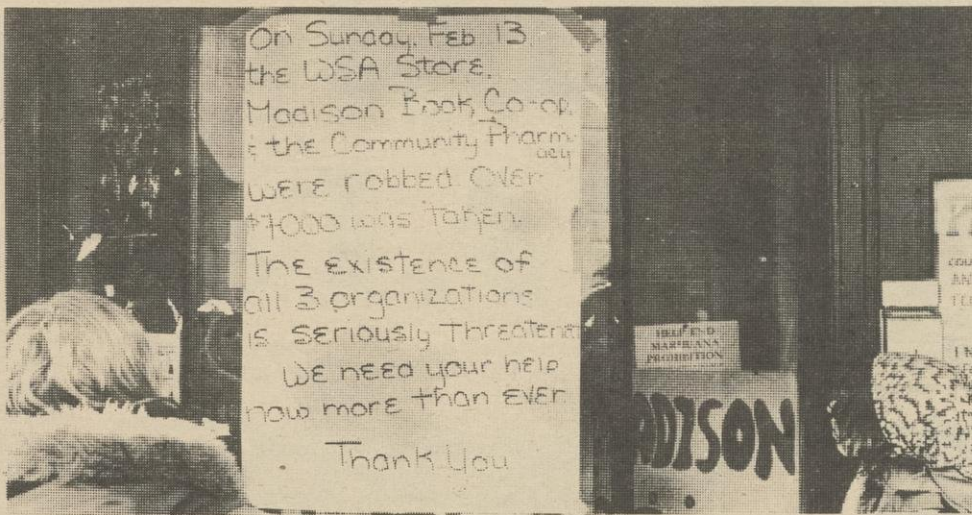 On Sunday, Feb 13
the WSA Store,
Madison Book Co-op,
& the Community Pharm
acy
were robbed Over
$7000 was taken.
The existence of
all 3 organizations
is seriously threatene
We need your help
now more than ever
Thank You
HELP END
MARIJUANA
PROHIBITION
ADISON